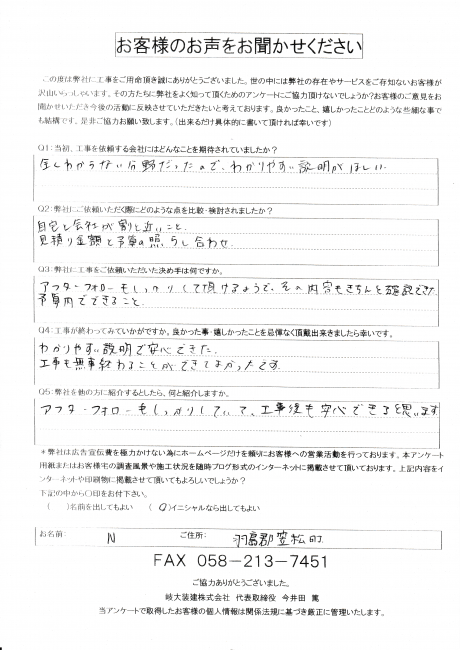 お客様のお声をお聞かせください
この度は弊社に工事をご用命頂き誠にありがとうございました。世の中には弊社の存在やサービスをご存知ないお客様が
沢山いらっしゃいます。その方たちに弊社をよく知って頂くためのアンケートにご協力頂けないでしょうか?お客様のご意見をお
聞かせいただき今後の活動に反映させていただきたいと考えております。良かったこと、嬉しかったことどのような些細な事で
も結構です。是非ご協力お願い致します。（出来るだけ具体的に書いて頂ければ幸いです）
Q1:当初、工事を依頼する会社にはどんなことを期待されていましたか？
全くわからない分野だったので、わかりやすい説明がほしい
Q2:弊社にご依頼いただく際にどのような点を比較・検討されましたか？
自宅と会社が割と近いこと.
見積り金額と予算の照らし合わせ.
Q3:弊社に工事をご依頼いただいた決め手は何ですか。
アフターフォローもしっかりして頂けるようで、その内容もきちんと確認できた
予算内でできること.
Q4:工事が終わってみていかがですか。良かった事・嬉しかったことを忌憚なく頂戴出来きましたら幸いです。
わかりやすい説明で安心できた.
工事も無事終わることができてよかったです.
Q5:弊社を他の方に紹介するとしたら、何と紹介しますか。
アフターフォローもしっかりしていて、工事後も安心できると思います
＊弊社は広告宣伝費を極力かけない為にホームページだけを頼りにお客様への営業活動を行っております。本アンケート
用紙またはお客様宅の調査風景や施工状況を随時ブログ形式のインターネットに掲載させて頂いております。上記内容をイ
ンターネットや印刷物に掲載させて頂いてもよろしいでしょうか？
下記の中から〇印をお付下さい。
（　）名前を出してもよい　（〇）イニシャルなら出してもよい
お名前: N ご住所: 羽島郡笠松町.
FAX 058-213-7451
ご協力ありがとうございました。
岐大装建株式会社 代表取締役 今井田 篤
当アンケートで取得したお客様の個人情報は関係法規に基づき厳正に管理いたします。